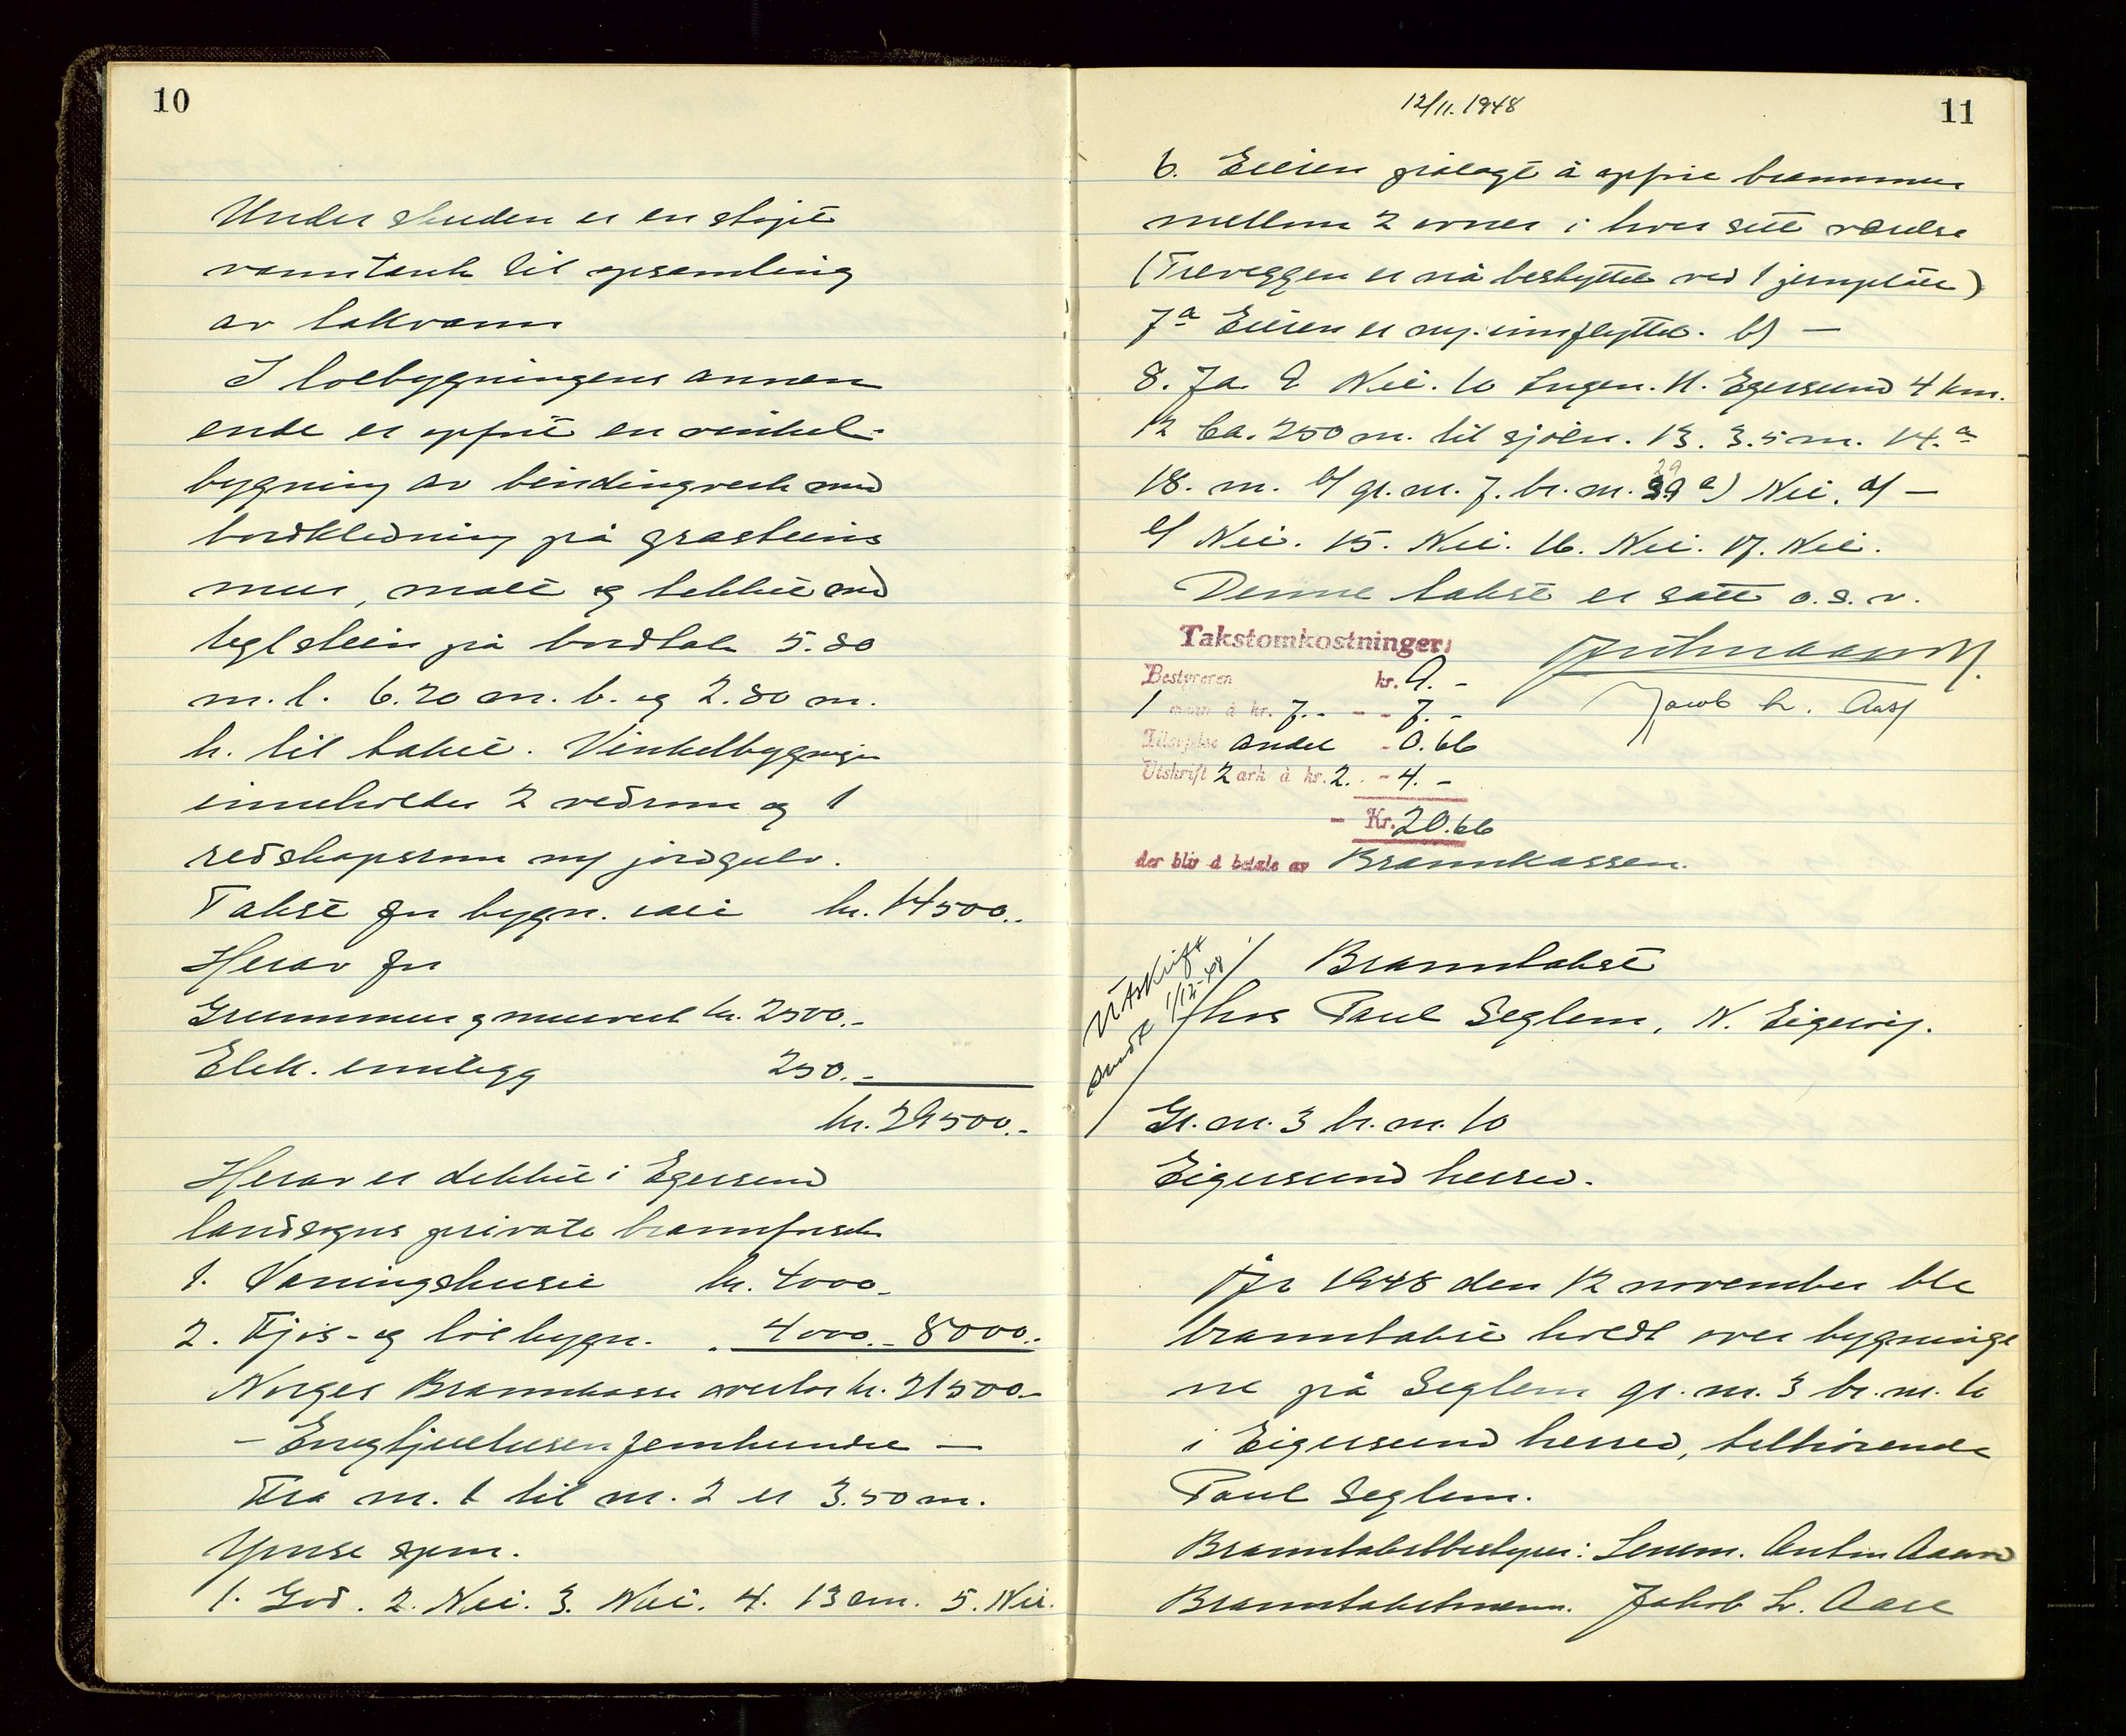 10
Under skuden er en støpt
vanntank til opsamling
av takvann
I løebygningens annen
ende er opført en vinkel-
bygning av bindingverk med
bordkledning på grasteins
mur, malt og tekket med
teglstein på bordtak 5.80
m. l. 6.20 m. b. og 2.80 m.
h. til taket. Vinkelbygningen
inneholder 2 vedrom og 1
redskapsrom m/ jordgulv.
Takst for bygn. kr. 14500.-
Herav for
Grunnmur og murverk kr. 2500.-
Elek. innlegg 250.-
kr. 29500.-
Herav er dekket i Egersund
landsogns private brannforsik
1. Våningshuset kr. 4000.-
2. Fjøs- og løebygn. - 4000.- 8000.-
Norges Brannkasse overtar kr. 21500.-
- Enogtjuetusenfemhundre -
Fra nr. 1 til nr. 2 er 3.50 m.
Ymse spm.
1. God. 2. Nei. 3. Nei. 4. 13 cm. 5. Nei.
12/11.1948
11
6. Eieren pålagt å opføre brannmur
mellom 2 ovner i hver sitt værelse
(Treveggen er nå beskyttet ved 1 jernplate)
7a Eieren er nyinnflyttet. b) -
8. Ja 9 Nei. 10 Ingen. 11. Egersund 4 km.
12 Ca. 250 m. til sjøen. 13. 3.5 m. 14. a
18. m. b/ gr. nr. 7. br. nr. 29 c) Nei. d/ -
e/ Nei. 15. Nei. 16. Nei. 17. Nei.
Denne takst er satt o. s. v.
Takstomkostninger:
Bestyreren kr. 9.-
1 mann à kr. 7.- - - 7.-
Tilsigelse andel - 0.66
Utskrift 2 ark à kr. 2.. - 4.-
- Kr. 20.66
der blir å betale av Brannkassen.
Jacob L. Aase
Utskrift
sendt 1/12-48
Branntakst
hos Paul Seglem, N. Eigerøy.
Gr. nr. 3 br. nr. 10
Eigersund herred.
År 1948 den 12 november ble
branntakst holdt over bygninge
ne på Seglem gr. nr. 3 br. nr. 10
i Eigersund herred, tilhørende
Paul Seglem.
Branntakstbestyrer: Lensm. Anton Aaand
Branntakstmenn. Jakob L. Aase